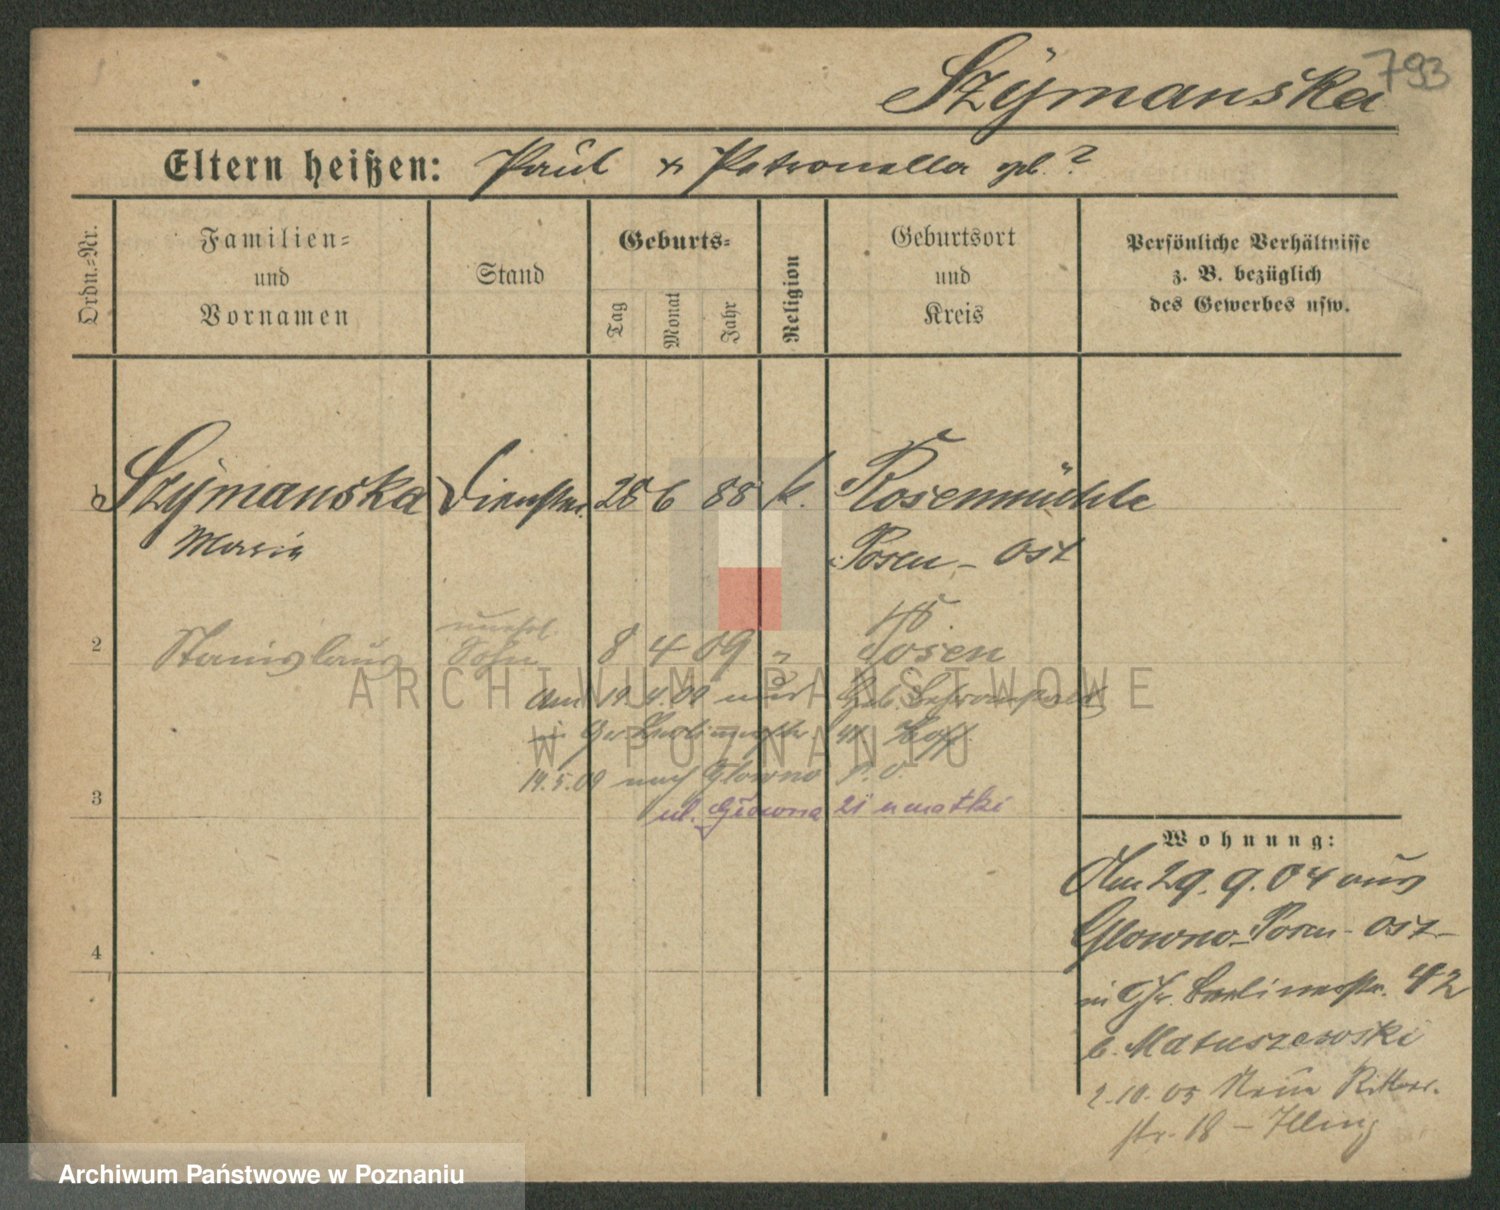 793
Szÿmanska
Eltern heißen: Paul & Petronella geb. ?
Ordn.=Nr.
Familien=
und
Vornamen
Stand
Geburts=
Tag
Monat
Jahr
Religion
Geburtsort
und
Kreis
Persönliche Verhältnisse
z. B. bezüglich
des Gewerbes usw.
1 Szÿmanska Dienstm. 28 6 88 k. Rosenmühle
Maria Posen - Ost
2 Stanislaus unehel. Sohn 8 4 09 " Posen
Am 19.4.09 aus Geb.
in Gr. Berlinerstr
14.5.09 nach Glowno P. O.
ul. Główna 21 u matki
3
4
Wohnung:
Am 29.9.04 aus
Glowno - Posen - Ost -
in Gr. Berlinerstr. 42
b. Matuszewski
2.10.05 Neue Ritter-
str. 18 - Illing
ARCHIWUM PAŃSTWOWE
W POZNANIU
Archiwum Państwowe w Poznaniu